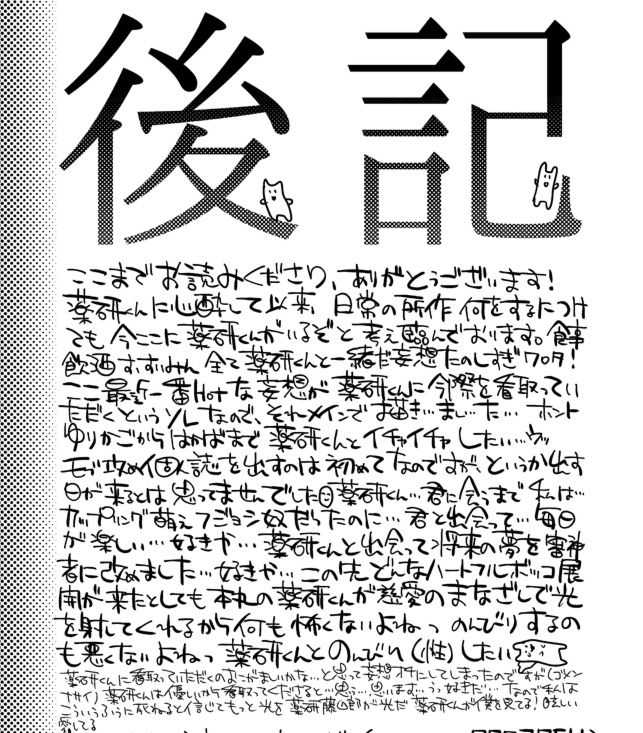 後記
ここまでお読みくださり、ありがとうございます!
薬研くんに心酔して以来、日常の所作 何をするにつけ
ても 今ここに 薬研くんがいるぞと考え臨んでおります。食事
飲酒 すいみん 全て薬研くんと一緒だ妄想たのしすぎワロタ!
ここ最近一番Hotな妄想が 薬研くんに今際を看取ってい
ただくというソレなので、それメインでお描き…まし…た… ホント
ゆりかごからはかばまで 薬研くんとイチャイチャしたい…ウッ
モブ攻め個人誌を出すのは初めてなのですが、というか出す
日が来るとは思ってませんでした 薬研くん…君に会うまで私は…
カップリング萌えフジョシ奴だったのに…君と出会って…毎日
が楽しい…好きや…薬研くんと出会って将来の夢を審神
者に改めました…好きや…この先どんなハートフルボッコ展
開が来たとしても本丸の薬研くんが慈愛のまなざしで光
を射してくれるから何も怖くないよねっ のんびりするの
も悪くないよねっ 薬研くんとのんびり(性)したい
薬研くんに看取っていただくのよこがましいかな…と思って妄想オチにしてしまったのですが(ゴメン
ナサイ)薬研くんは優しいから看取ってくださると…思…思います…うっ好きだ…なので私は
こういうふうに死ねると信じてもっと光を 薬研藤四郎が光だ 薬研くんが僕を見てる!眩しい
愛してる